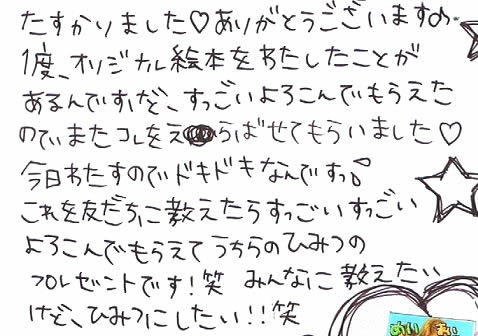 たすかりました♡ありがとうございます♪
1度、オリジナル絵本をわたしたことが
あるんですけど、すっごいよろこんでもらえた
のでまたコレをえらばせてもらいました♡
今日わたすのでドキドキなんですっ。
これを友だちに教えたらすっごいすっごい
よろこんでもらえて うちらのひみつの
プレゼントです!笑 みんなに教えたい
けど、ひみつにしたい!!笑